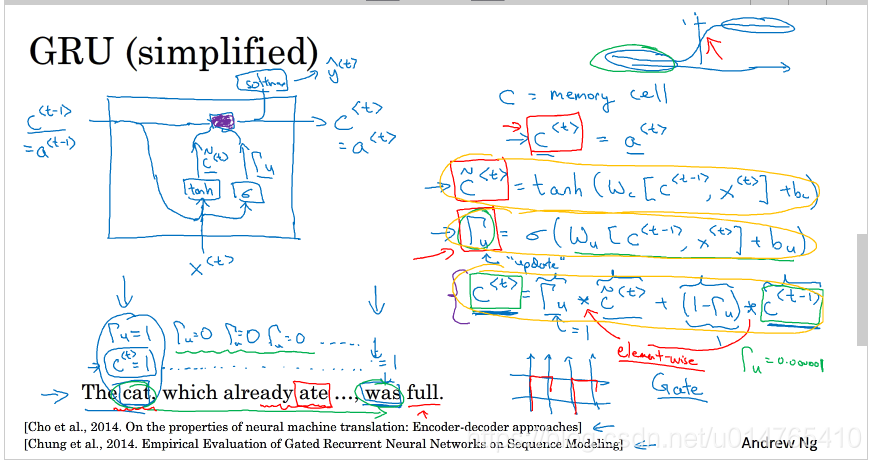 GRU (simplified)
softmax → ŷ<t>
c<t-1>
= a<t-1>
c̃<t>
Γu
tanh
σ
c<t>
= a<t>
x<t>
C = memory cell
→ c<t> = a<t>
→ c̃<t> = tanh (Wc [c<t-1>, x<t>] + bc)
→ Γu = σ (Wu [c<t-1>, x<t>] + bu)
"update"
c<t> = Γu * c̃<t> + (1-Γu) * c<t-1>
= 1
element-wise
Gate
Γu = 0.000001
Γu=1 Γu=0 Γu=0 Γu=0 .....
c<t>=1 ............ =1
→ The cat, which already ate ..., was full.
[Cho et al., 2014. On the properties of neural machine translation: Encoder-decoder approaches] ←
[Chung et al., 2014. Empirical Evaluation of Gated Recurrent Neural Networks on Sequence Modeling] ←
Andrew Ng
https://blog.csdn.net/u014765410